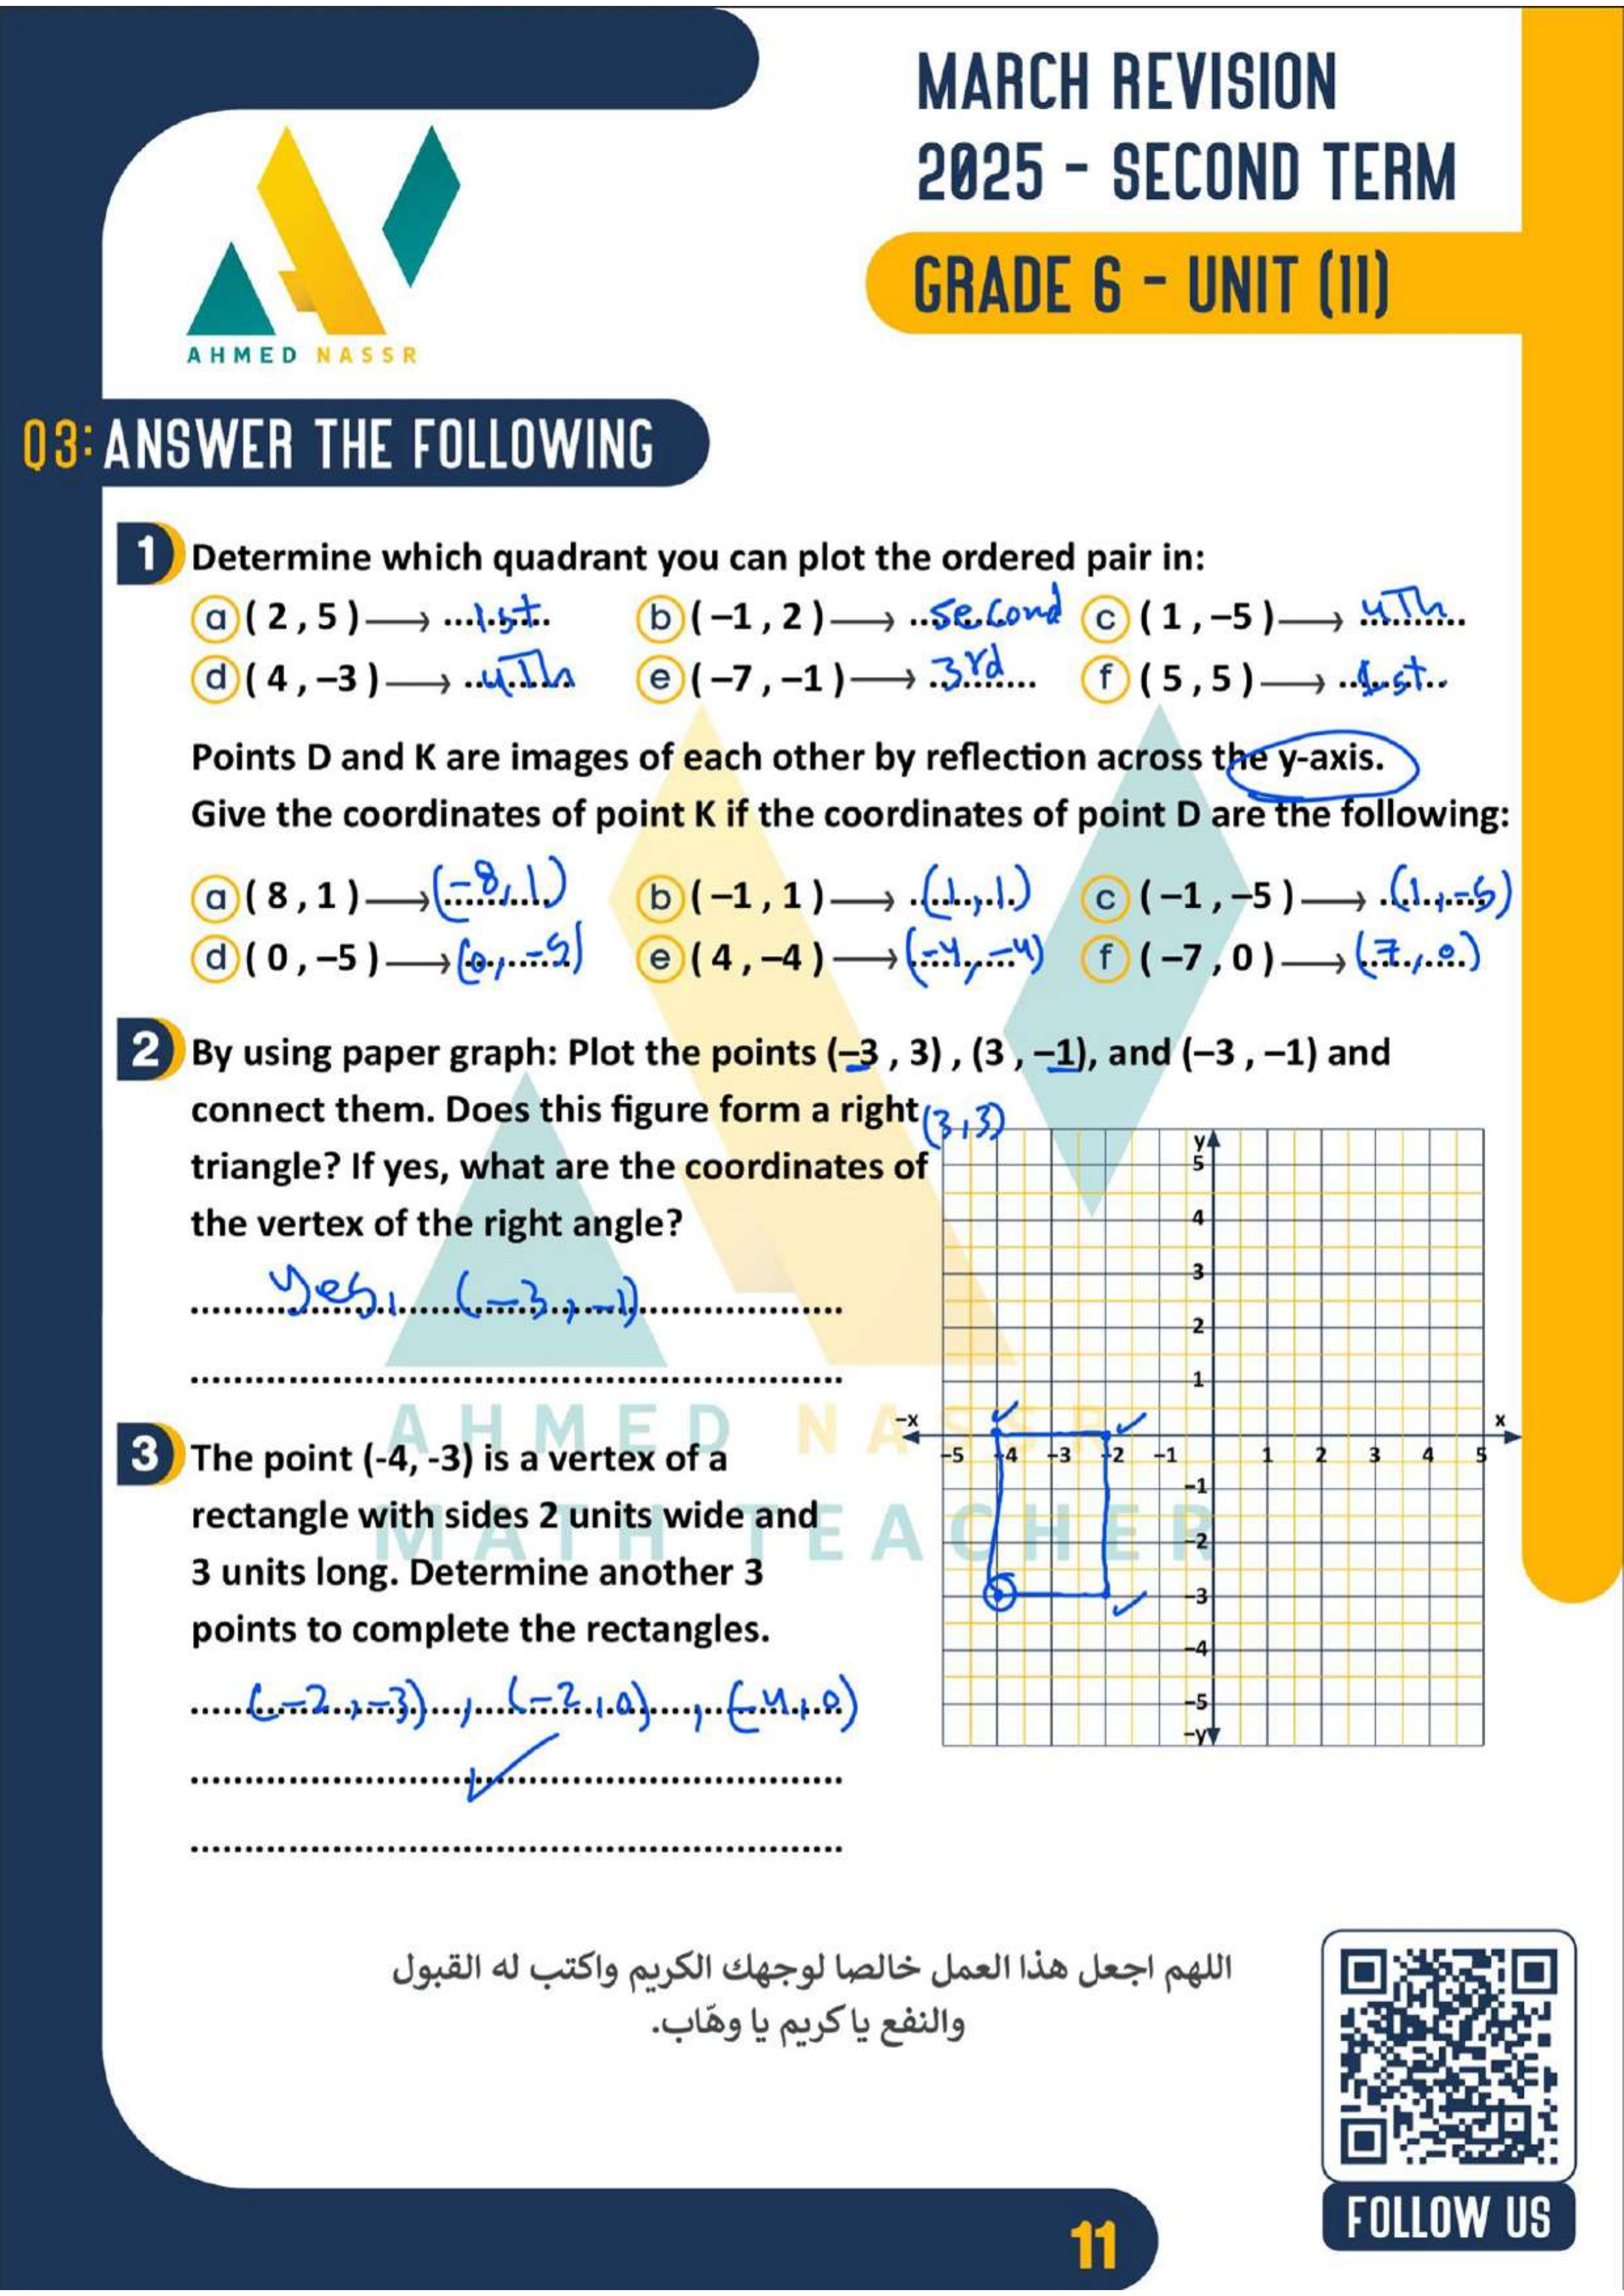 MARCH REVISION
2025 - SECOND TERM
GRADE 6 - UNIT (11)
AHMED NASSR
Q3: ANSWER THE FOLLOWING
1 Determine which quadrant you can plot the ordered pair in:
a ( 2 , 5 ) → ...1st... b ( –1 , 2 ) → ...second c ( 1 , –5 ) → 4Th...
d ( 4 , –3 ) → ...4Th e ( –7 , –1 ) → 3rd... f ( 5 , 5 ) → ...1st...
Points D and K are images of each other by reflection across the y-axis.
Give the coordinates of point K if the coordinates of point D are the following:
a ( 8 , 1 ) → (-8,1) b ( –1 , 1 ) → (1,1) c ( –1 , –5 ) → (1,-5)
d ( 0 , –5 ) → (0,-5) e ( 4 , –4 ) → (-4,-4) f ( –7 , 0 ) → (7,0)
2 By using paper graph: Plot the points (–3 , 3) , (3 , –1), and (–3 , –1) and
connect them. Does this figure form a right (3,3)
triangle? If yes, what are the coordinates of
the vertex of the right angle?
yes, (-3,-1)
3 The point (-4, -3) is a vertex of a
rectangle with sides 2 units wide and
3 units long. Determine another 3
points to complete the rectangles.
(-2,-3) , (-2,0) , (-4,0)
y
5
4
3
2
1
–x x
–5 –4 –3 –2 –1 1 2 3 4 5
–1
–2
–3
–4
–5
–y
AHMED NASSR
MATH TEACHER
اللهم اجعل هذا العمل خالصا لوجهك الكريم واكتب له القبول
والنفع يا كريم يا وهّاب.
FOLLOW US
11